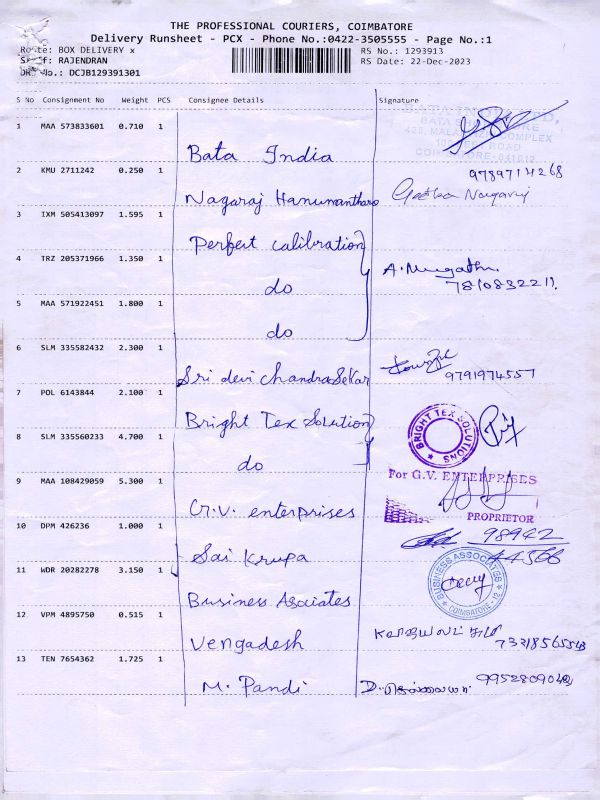 THE PROFESSIONAL COURIERS, COIMBATORE
Delivery Runsheet - PCX - Phone No.:0422-3505555 - Page No.:1
Route: BOX DELIVERY x
RS No.: 1293913
Staff: RAJENDRAN
RS Date: 22-Dec-2023
DRS No.: DCJB129391301
S No Consignment No Weight PCS Consignee Details Signature
BATA INDIA LIMITED,
BATA SHOE STORE
COMPLEX
ROAD
COIMBATORE-641012
1 MAA 573833601 0.710 1 Bata India
9789714268
2 KMU 2711242 0.250 1 Nagaraj Hanumantharo Geetha Nagaraj
3 IXM 505413097 1.595 1 Perfect calibration
4 TRZ 205371966 1.350 1 do
7810832211
5 MAA 571922451 1.800 1 do
6 SLM 335582432 2.300 1 Sri devi ChandraSekar
9791974557
7 POL 6143844 2.100 1 Bright Tex Solution
BRIGHT TEX SOLUTIONS
8 SLM 335560233 4.700 1 do
For G.V. ENTERPRISES
9 MAA 108429059 5.300 1 G.V. enterprises
PROPRIETOR
10 DPM 426236 1.000 1 Sai Krupa
98942
44566
11 WDR 20282278 3.150 1 Business Asociates
BUSINESS ASSOCIATES
COIMBATORE - 12
12 VPM 4895750 0.515 1 Vengadesh
13 TEN 7654362 1.725 1 M. Pandi